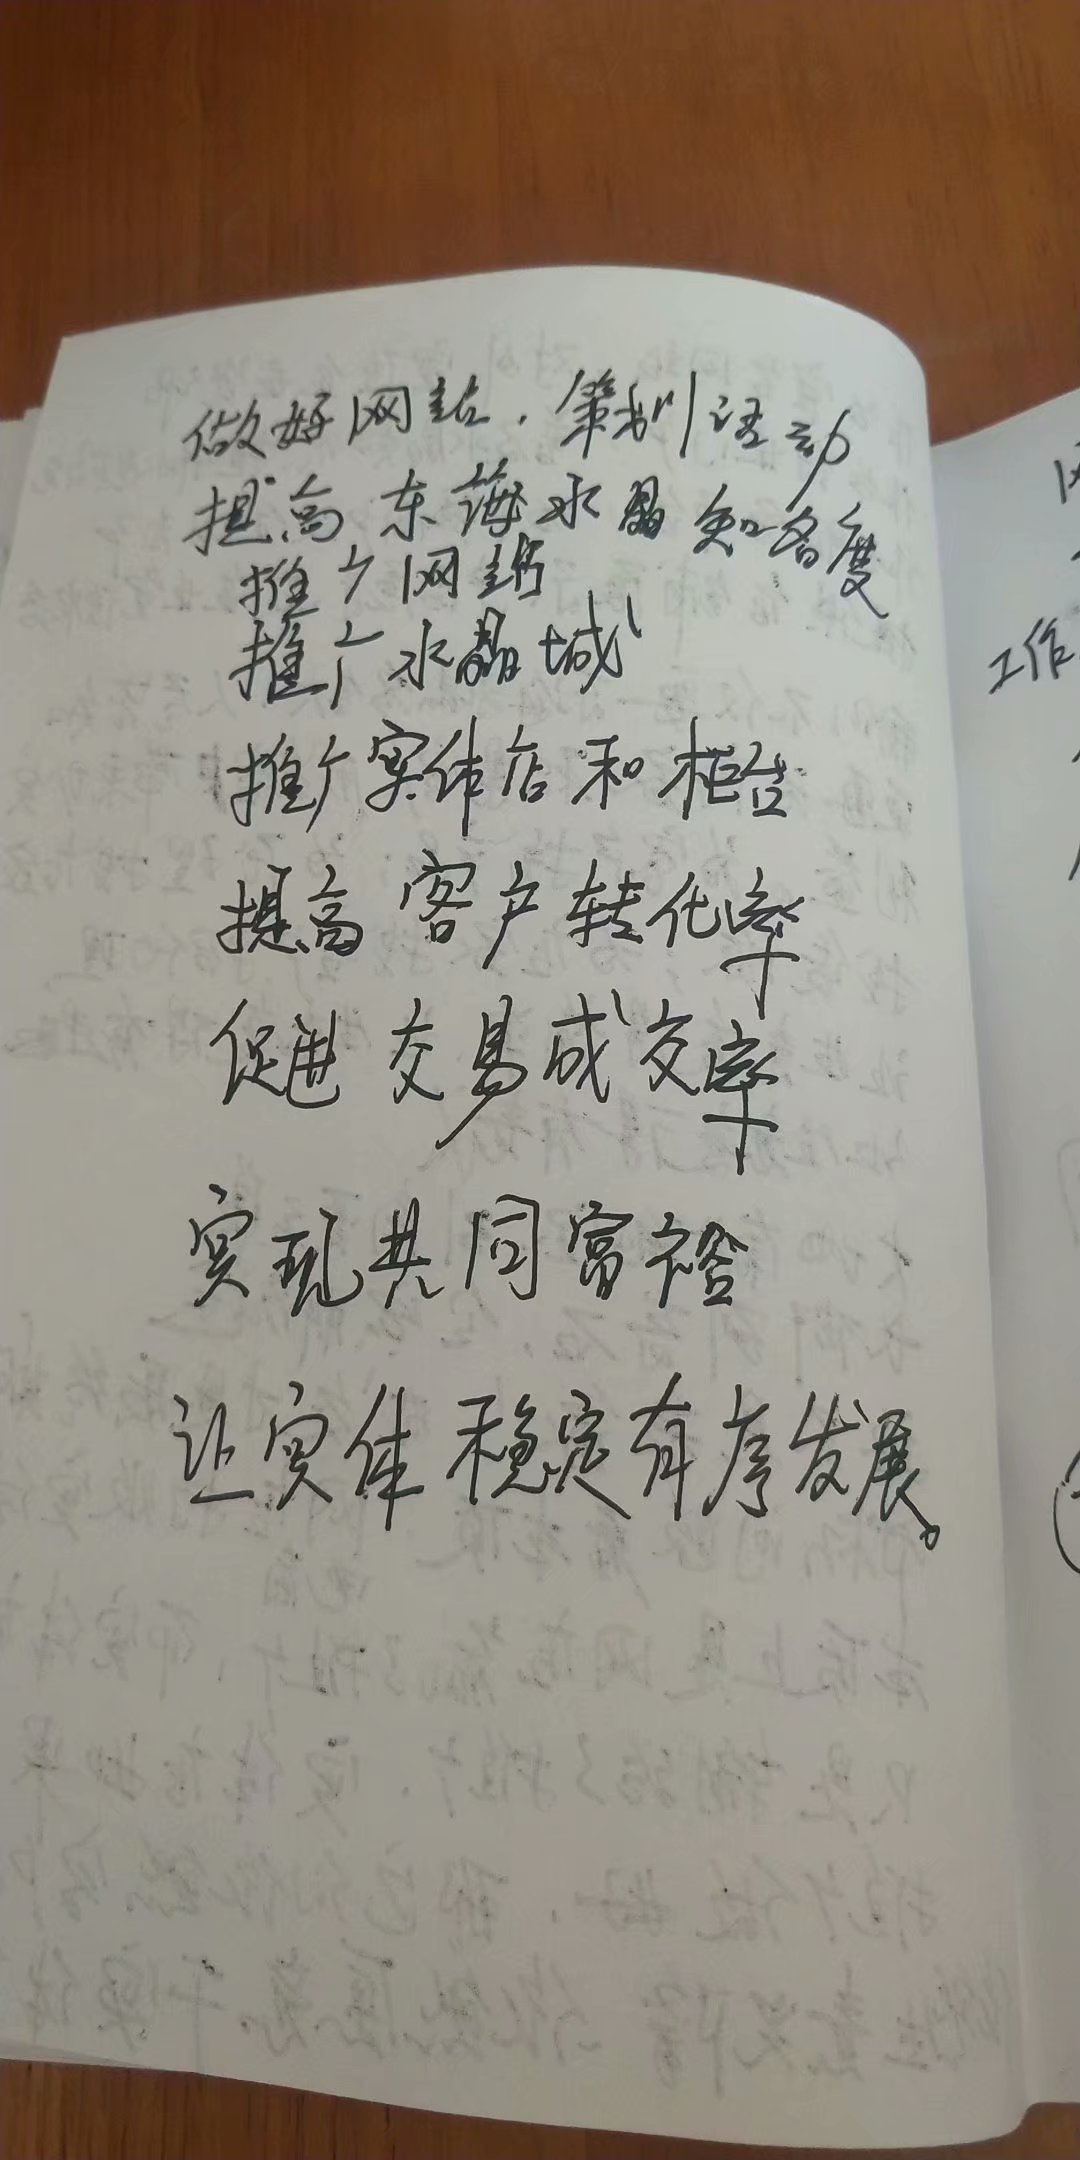 做好网站.策划活动
提高东海水晶知名度
推广网站
推广水晶城
推广实体店和柜台
提高客户转化率
促进交易成交率
实现共同富裕
让实体稳定有序发展。
工作